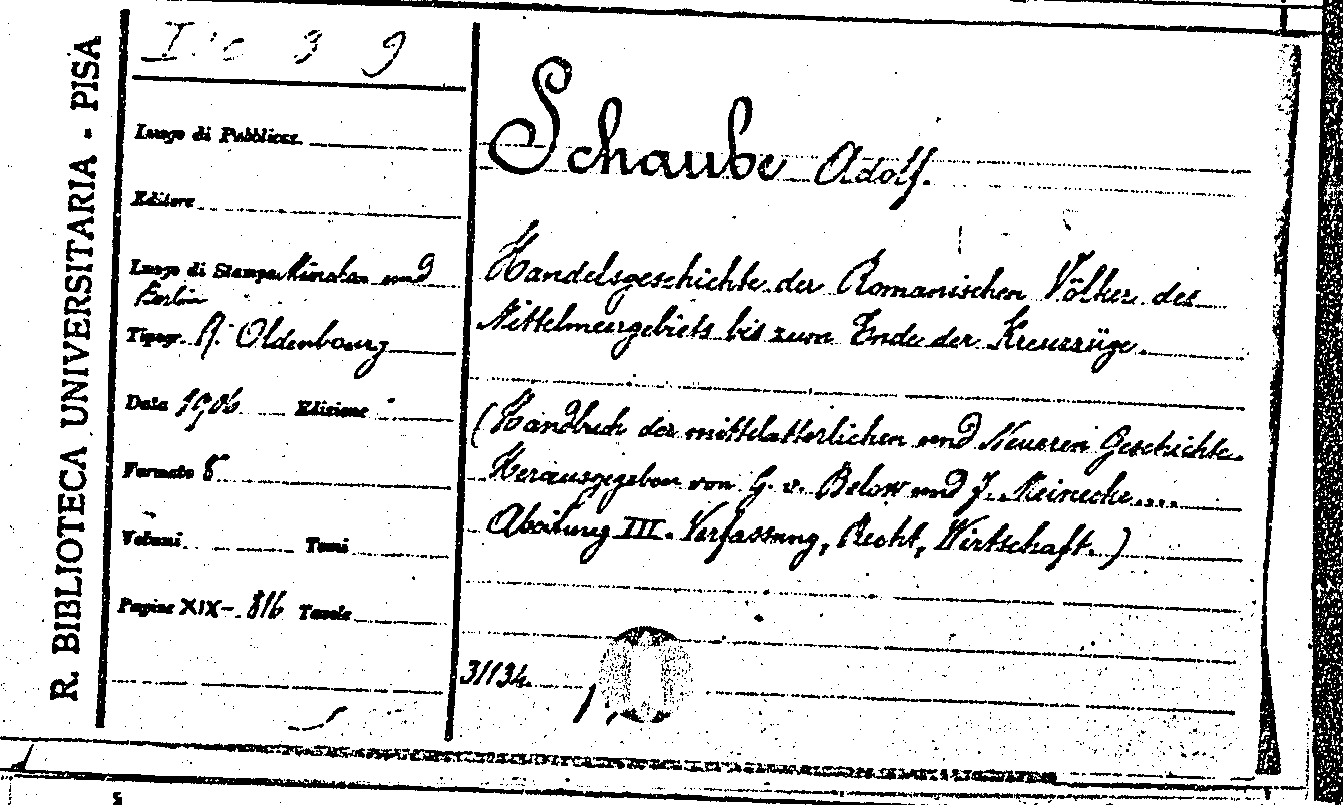 R. BIBLIOTECA UNIVERSITARIA - PISA
I c 3 9
Luogo di Pubblicaz.
Editore
Luogo di Stampa München und
Berlin
Tipogr. R. Oldenbourg
Data 1906 Edizione
Formato 8
Volumi Tomi
Pagine XIX- 816 Tavole
Schaube Adolf.
Handelsgeschichte der Romanischen Völker des
Mittelmeergebiets bis zum Ende der Kreuzzüge.
(Handbuch der mittelatterlichen und Neueren Geschichte.
Herausgegeben von G. v. Below und F. Meinecke....
Abteilung III. Verfassung, Recht, Wirtschaft.)
31134.